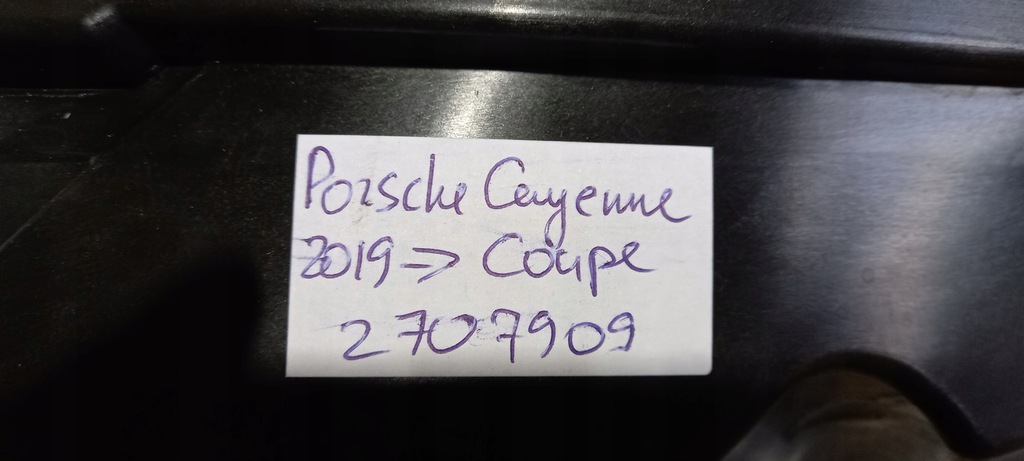 Porsche Cayenne
2019-> Coupe
2707909